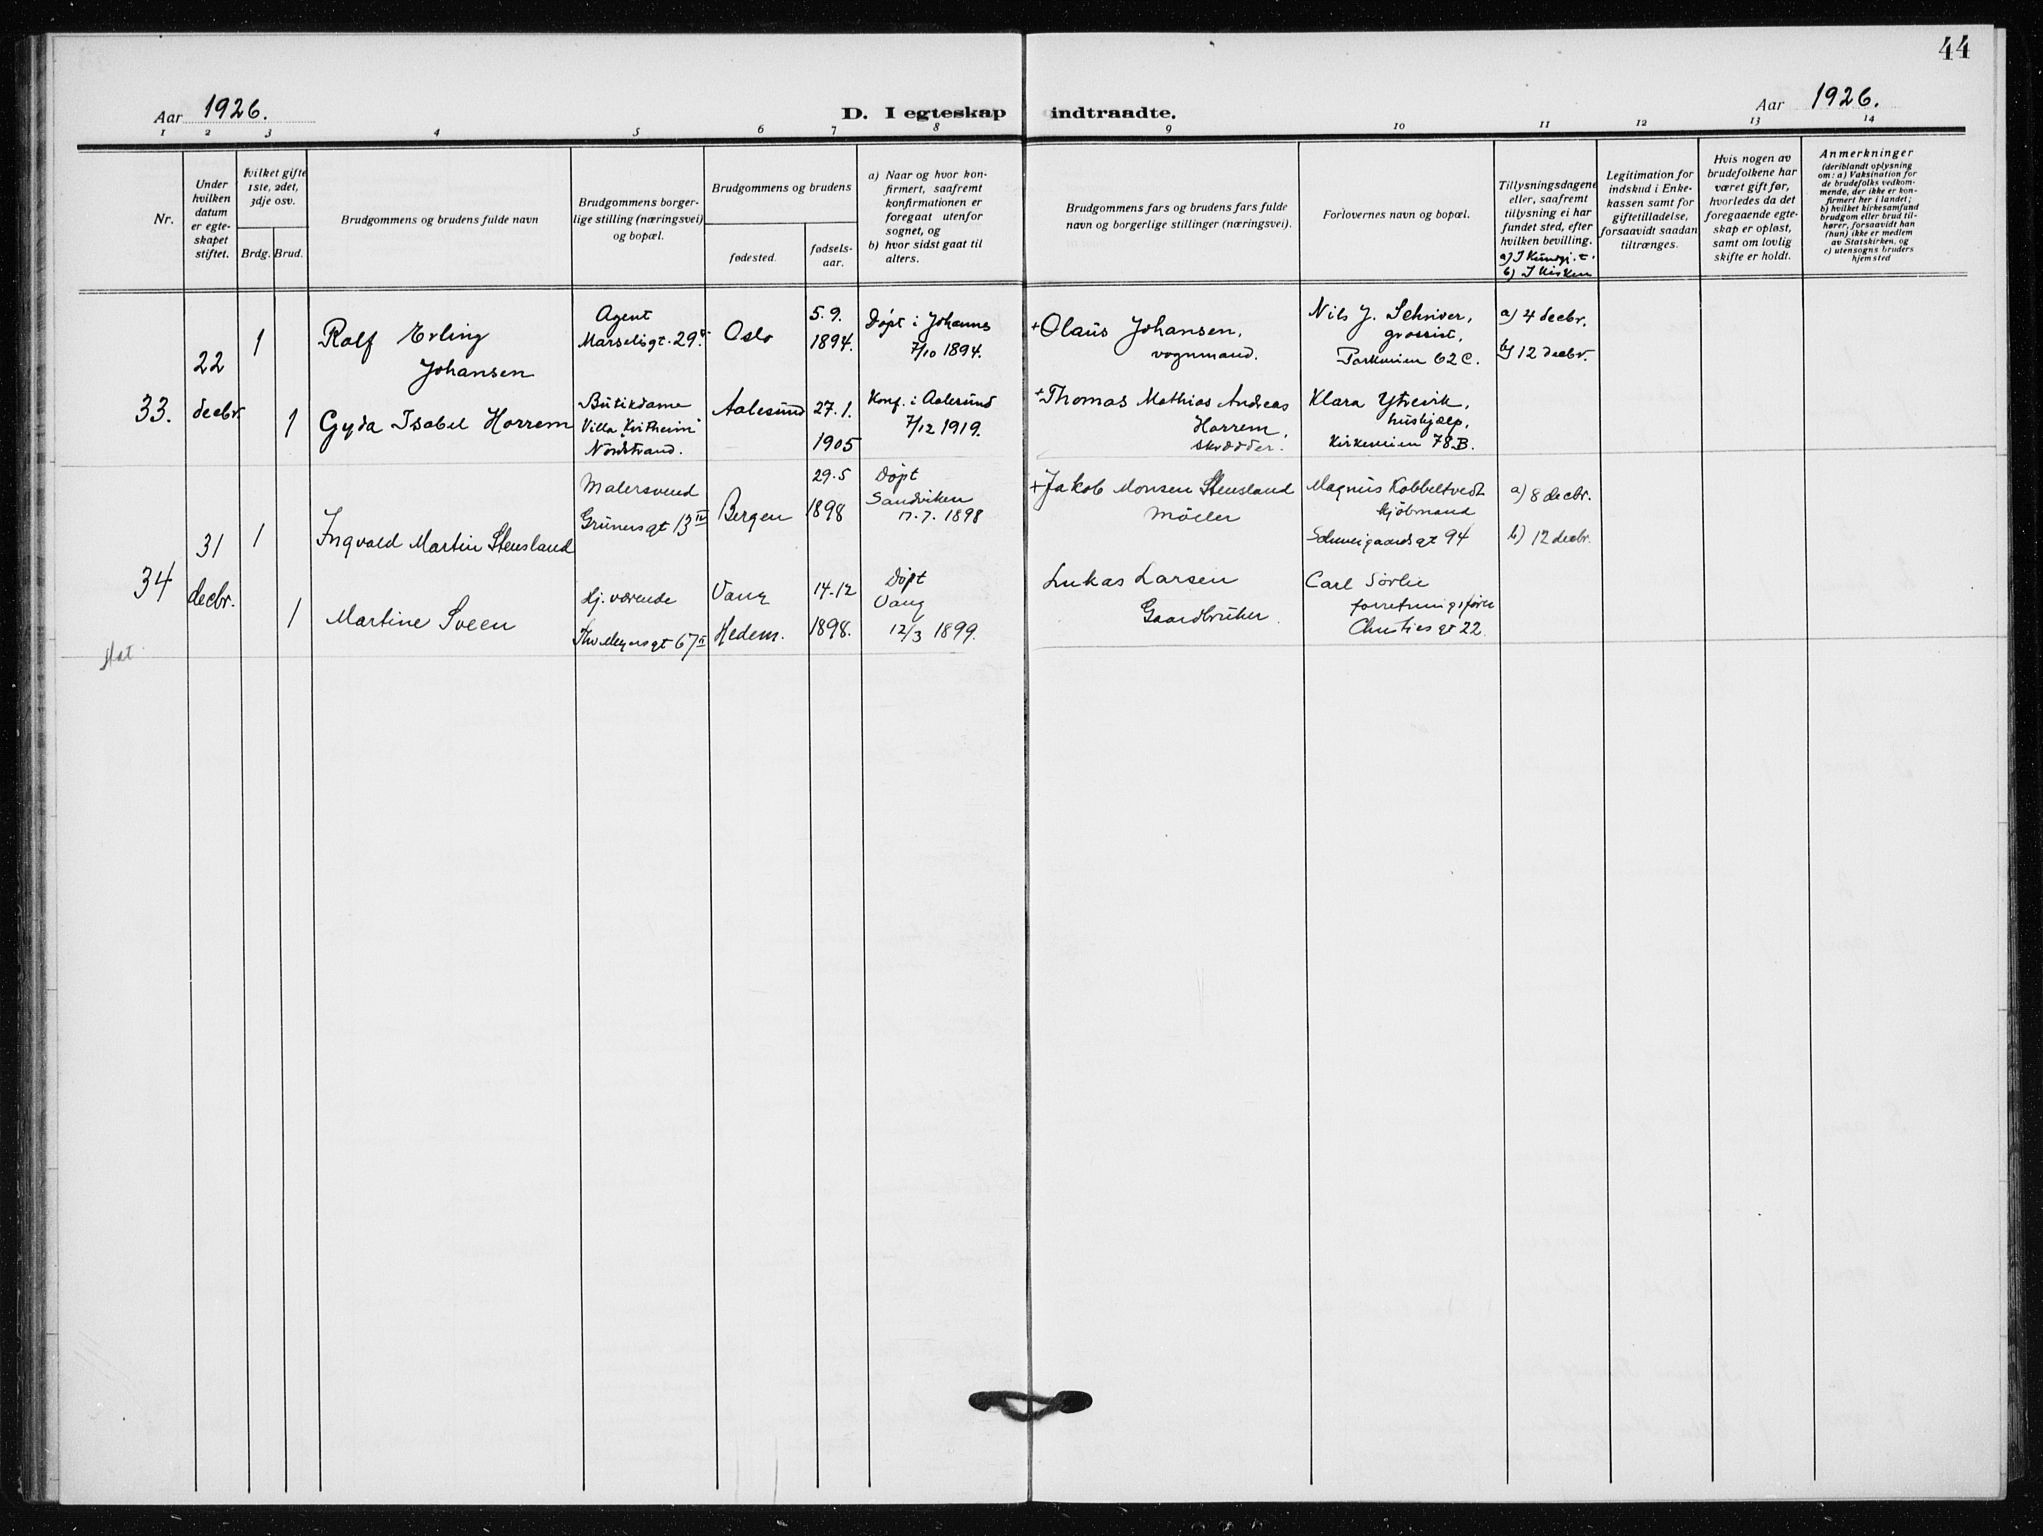 44
Aar 1926.
D. I egteskap indtraadte.
Aar 1926.
1 2 3 4 5 6 7 8 9 10 11 12 13 14
Nr.
Under
hvilken
datum
er egte-
skapet
stiftet.
hvilket gifte
1ste, 2det,
3dje osv.
Brdg. Brud.
Brudgommens og brudens fulde navn
Brudgommens borger-
lige stilling (næringsvei)
og bopæl.
Brudgommens og brudens
fødested.
fødsels-
aar.
a) Naar og hvor kon-
firmert, saafremt
konfirmationen er
foregaat utenfor
sognet, og
b) hvor sidst gaat til
alters.
Brudgommens fars og brudens fars fulde
navn og borgerlige stillinger (næringsvei).
Forlovernes navn og bopæl.
Tillysningsdagene
eller, saafremt
tillysning ei har
fundet sted, efter
hvilken bevilling.
a) I Kundgj. t.
b) I Kirken
Legitimation for
indskud i Enke-
kassen samt for
giftetilladelse,
forsaavidt saadan
tiltrænges.
Hvis nogen av
brudefolkene har
været gift før,
hvorledes da det
foregaaende egte-
skap er opløst,
samt om lovlig
skifte er holdt.
Anmerkninger
(deriblandt oplysning
om: a) Vaksination for
de brudefolks vedkom-
mende, der ikke er kon-
firmert her i landet;
b) hvilket kirkesamfund
brudgom eller brud til-
hører, forsaavidt han
(hun) ikke er medlem
av Statskirken, og
c) utensogns bruders
hjemsted
33.
22
decbr.
1
Rolf Erling
Johansen
Agent
Marseligt. 29
Oslo
5. 9.
1894.
Døpt i Johannes
7/10 1894.
+ Olaus Johansen,
vognmand.
Nils J. Schriver,
grossist,
Parkveien 62 C.
a) 4 decbr.
b) 12 decbr.
1
Gyda Isabel Horrem
Butikdame
Villa "Kvitheim"
Nordstrand.
Aalesund
27. 1.
1905
Konf. i Aalesund
7/12 1919.
+ Thomas Mathias Andreas
Horrem,
skrædder.
Klara Ytrevik,
hushjælp,
Kirkeveien 78B.
34
31
decbr.
1
Ingvald Martin Stensland
Malersvend
Grünersgt 13 IV
Bergen
29. 5
1898
Døpt
Sandviken
17. 7. 1898
+ Jakob Monsen Stensland
Møller
Magnus Kobbeltvedt
kjøbmand
Schweigaardsgt 94
a) 8 decbr.
b) 12 decbr.
1
Martine Sveen
Hj. værende
Thv Meyersgt 67 II
Vang
Hedem.
14-12
1898.
Døpt
Vang
12/3 1899.
Lukas Larsen
Gaardbruker.
Carl Sørlie
forretningsfører
Christies gt 22.